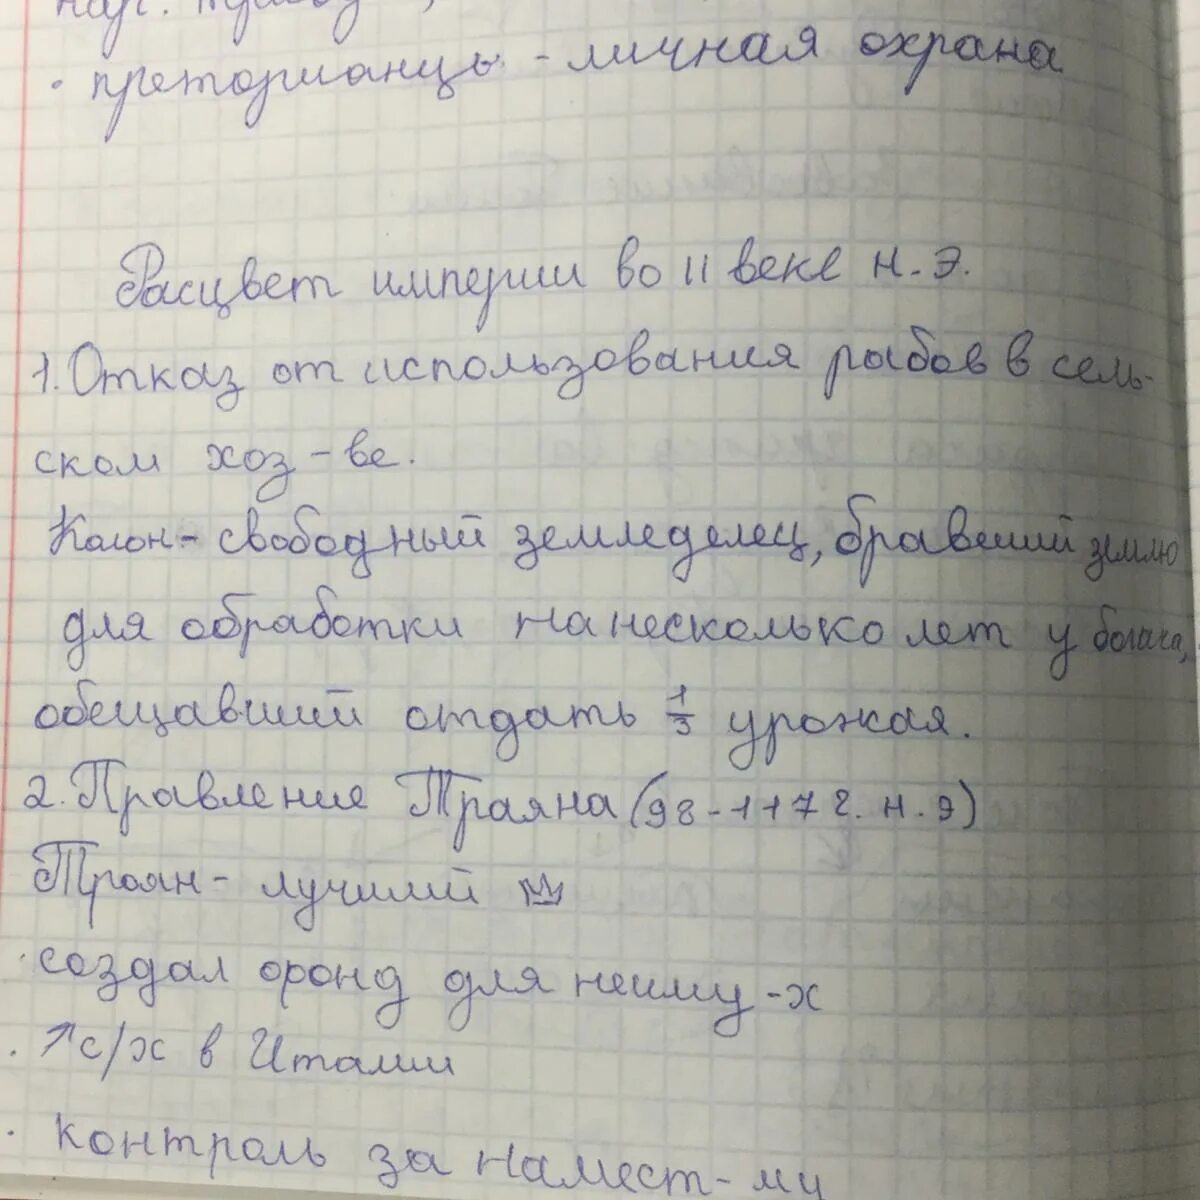 · преторианцы - личная охрана
Расцвет империи во II веке н.э.
1. Отказ от использования рыбов в сель-
ском хоз-ве.
Колон - свободный земледелец, бравший землю
для обработки на несколько лет у богача,
обещавший отдать 1/3 урожая.
2. Правление Траяна (98-117 г. н.э)
Троян - лучший
· создал фонд для неиму-х
· ↑ с/х в Италии
· контроль за намест-ми